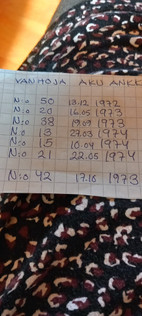 VANHOJA AKU ANKK
N:o 50 13.12 1972
N:o 20 16.05 1973
N:o 38 19.09 1973
N:o 13 27.03 1974
N:o 15 10.04 1974
N:o 21 22.05 1974
N:o 42 17.10 1973